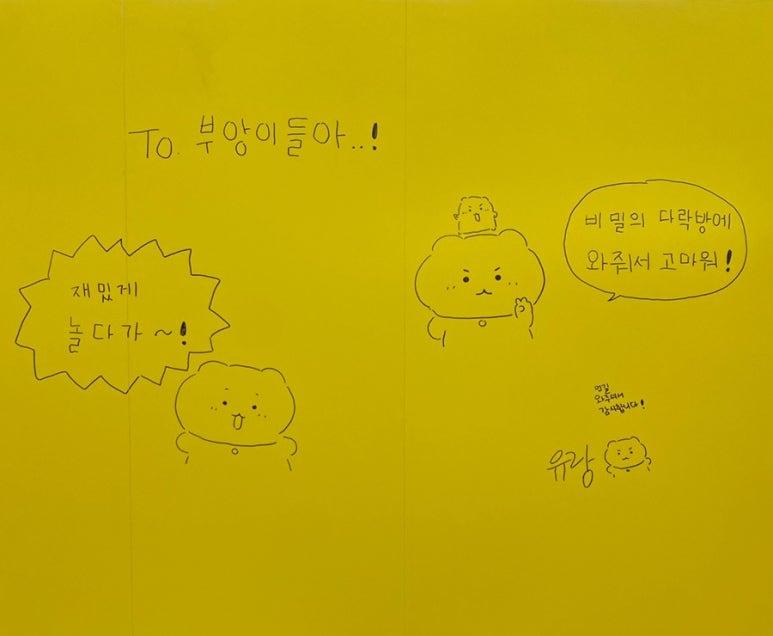 To. 부앙이들아..!
재밌게
놀다가~!
비밀의 다락방에
와줘서 고마워!
먼길
와주셔서
감사합니다!
유랑